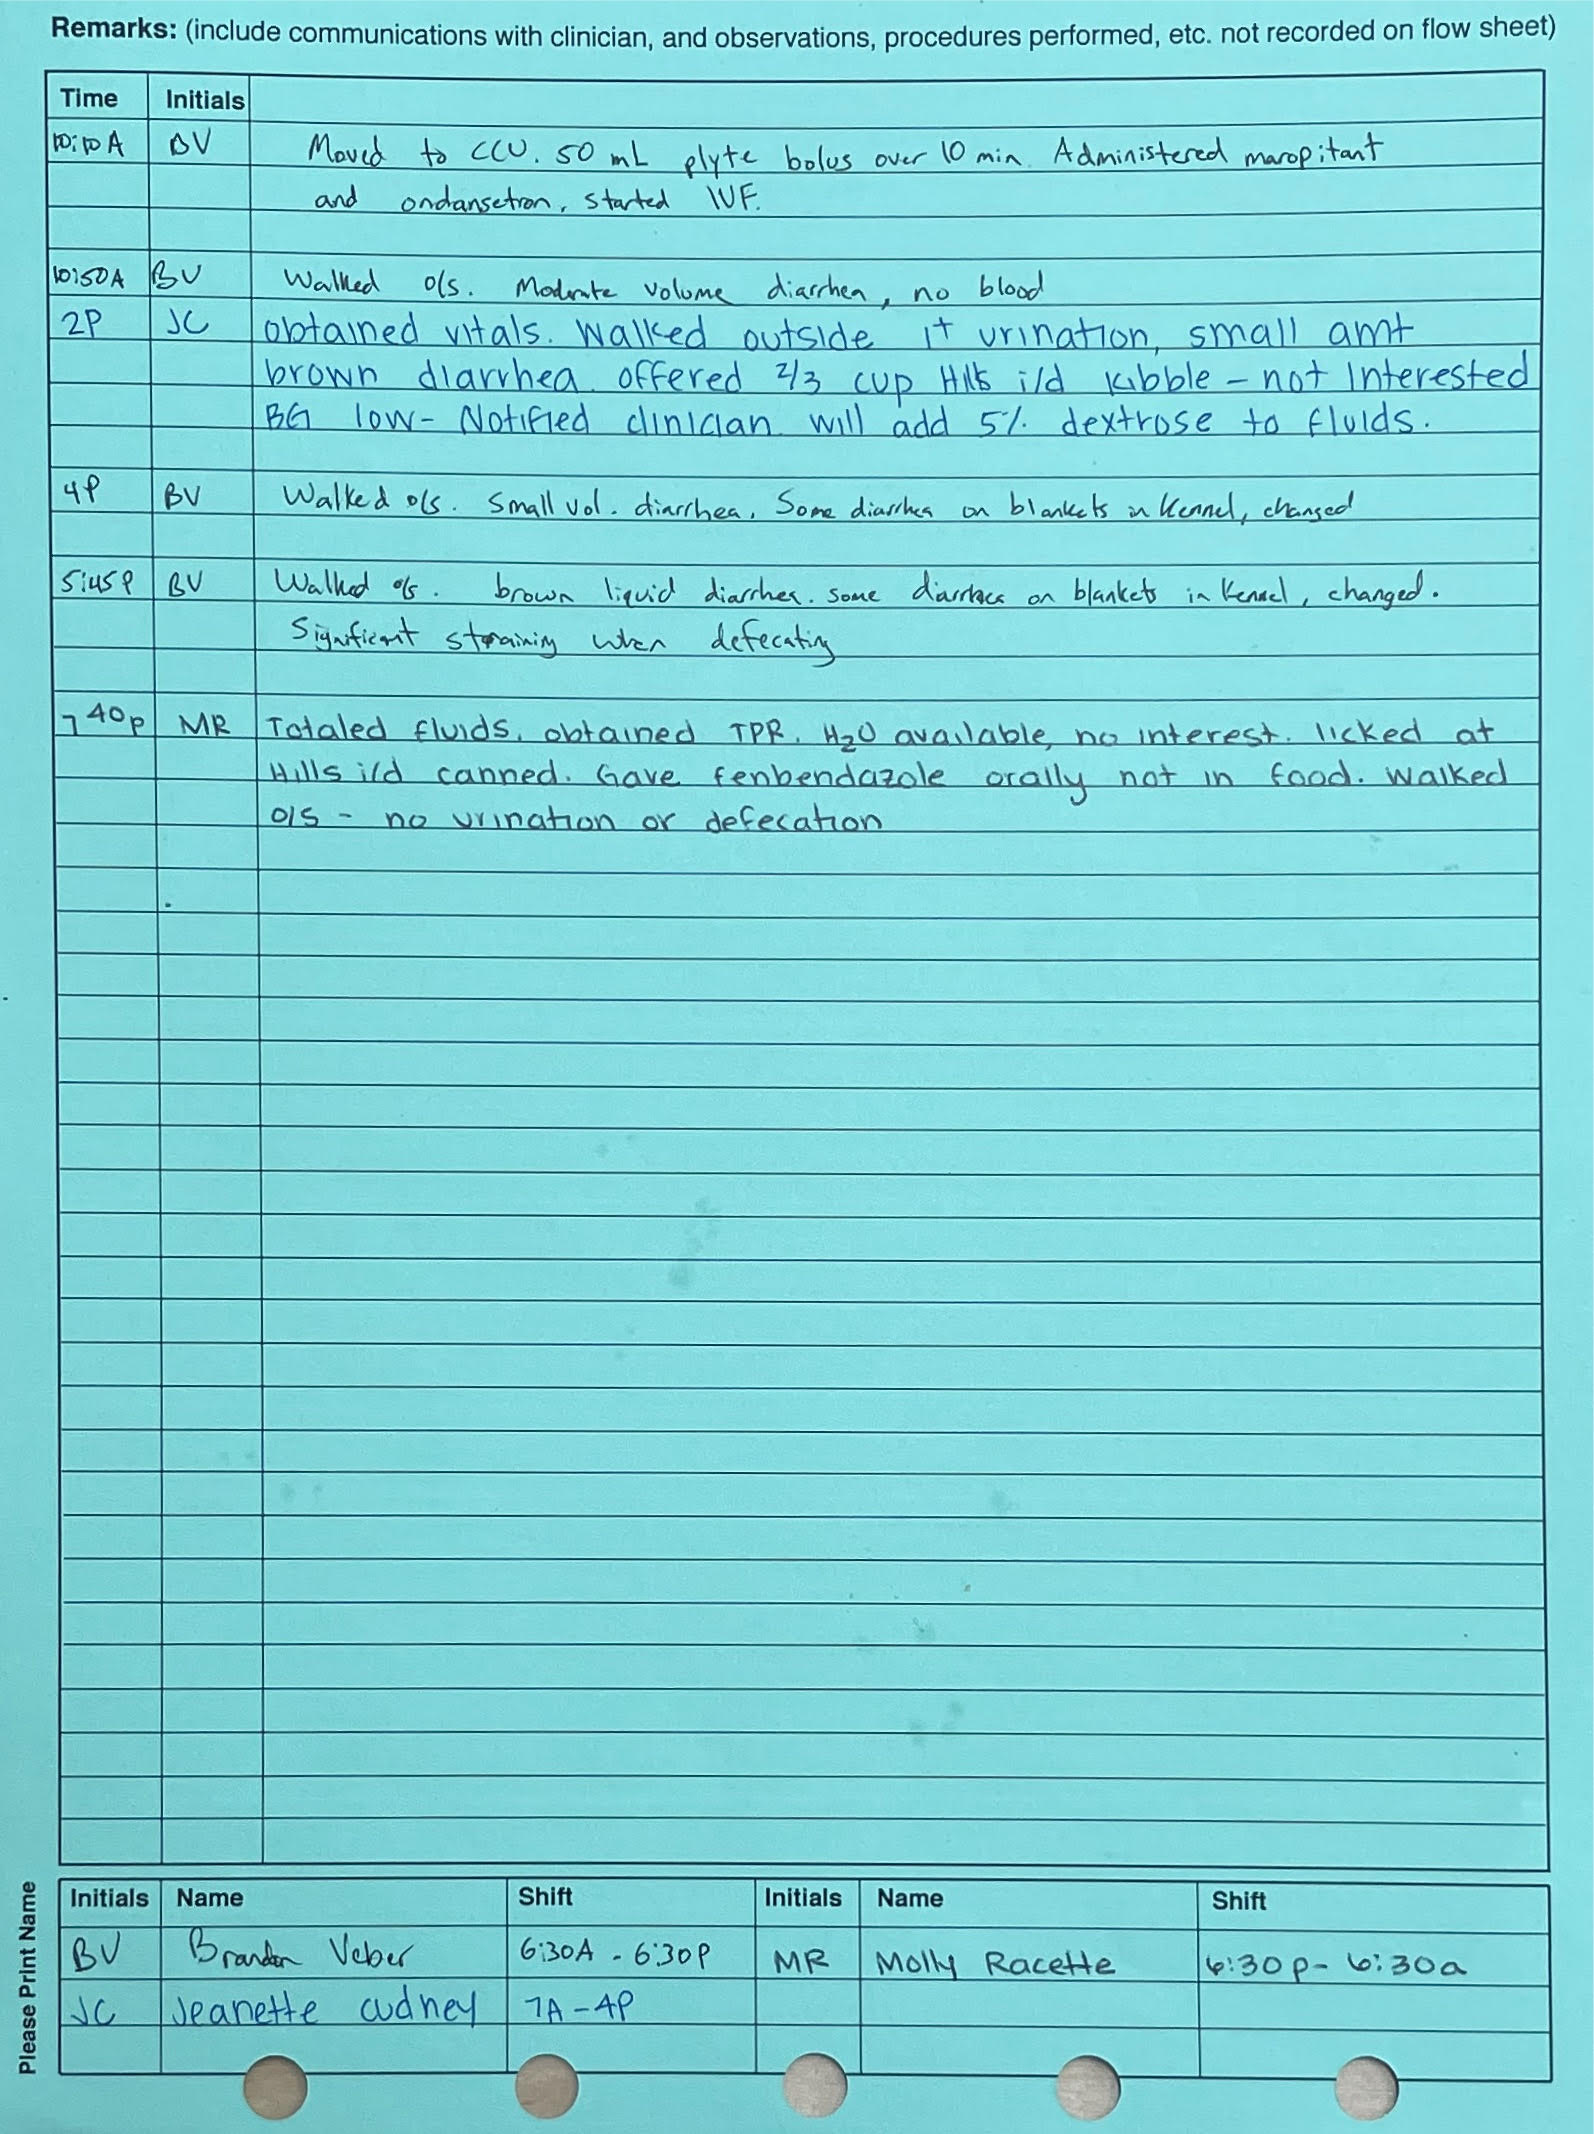 Remarks: (include communications with clinician, and observations, procedures performed, etc. not recorded on flow sheet)
Time Initials
10:10A BV Moved to CCU. 50 mL plyte bolus over 10 min. Administered maropitant
and ondansetron, started IVF.
10:50A BV Walked o/s. Moderate volume diarrhea, no blood
2P JC obtained vitals. Walked outside 1+ urination, small amt
brown diarrhea. offered 2/3 cup Hills i/d kibble - not interested
BG low - Notified clinician. will add 5% dextrose to fluids.
4P BV Walked o/s. Small vol. diarrhea. Some diarrhea on blankets in kennel, changed
5:45P BV Walked o/s. brown liquid diarrhea. some diarrhea on blankets in kennel, changed.
Significant straining when defecating
7 40p MR Totaled fluids, obtained TPR. H2O available, no interest. licked at
Hills i/d canned. Gave fenbendazole orally not in food. Walked
o/s - no urination or defecation
Please Print Name
Initials Name Shift Initials Name Shift
BV Brandon Veber 6:30A - 6:30P MR Molly Racette 6:30p - 6:30a
JC Jeanette Cudney 7A - 4P